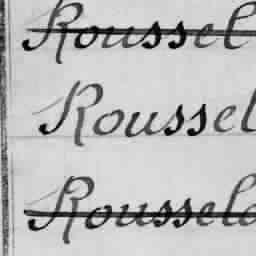 Roussel
Roussel
Roussel